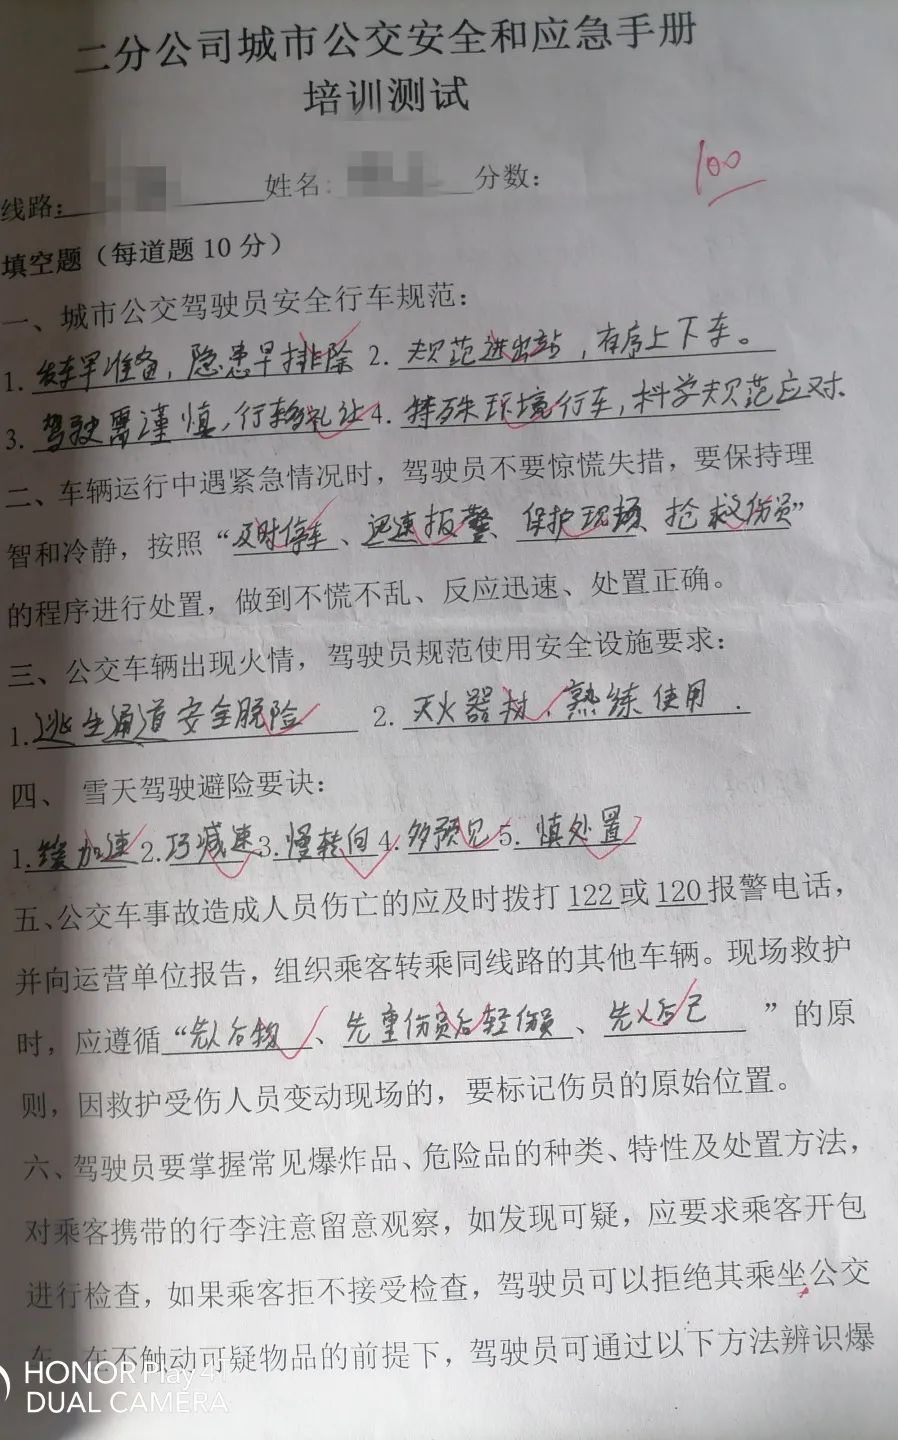 二分公司城市公交安全和应急手册
培训测试
线路: 姓名: 分数:
100
填空题（每道题10分）
一、城市公交驾驶员安全行车规范：
1. 发车早准备，隐患早排除 2. 规范进出站，有序上下车。
3. 驾驶需谨慎，行车多礼让 4. 特殊环境行车，科学规范应对.
二、车辆运行中遇紧急情况时，驾驶员不要惊慌失措，要保持理
智和冷静，按照“及时停车、迅速报警、保护现场、抢救伤员”
的程序进行处置，做到不慌不乱、反应迅速、处置正确。
三、公交车辆出现火情，驾驶员规范使用安全设施要求：
1. 逃生通道安全脱险 2. 灭火器材，熟练使用.
四、 雪天驾驶避险要诀：
1. 缓加速 2. 巧减速 3. 慢转向 4. 多预见 5. 慎处置
五、公交车事故造成人员伤亡的应及时拨打 122 或 120 报警电话，
并向运营单位报告，组织乘客转乘同线路的其他车辆。现场救护
时，应遵循“先人后物、先重伤员后轻伤员、先人后己”的原
则，因救护受伤人员变动现场的，要标记伤员的原始位置。
六、驾驶员要掌握常见爆炸品、危险品的种类、特性及处置方法，
对乘客携带的行李注意留意观察，如发现可疑，应要求乘客开包
进行检查，如果乘客拒不接受检查，驾驶员可以拒绝其乘坐公交
车。在不触动可疑物品的前提下，驾驶员可通过以下方法辨识爆
HONOR Play 4T
DUAL CAMERA